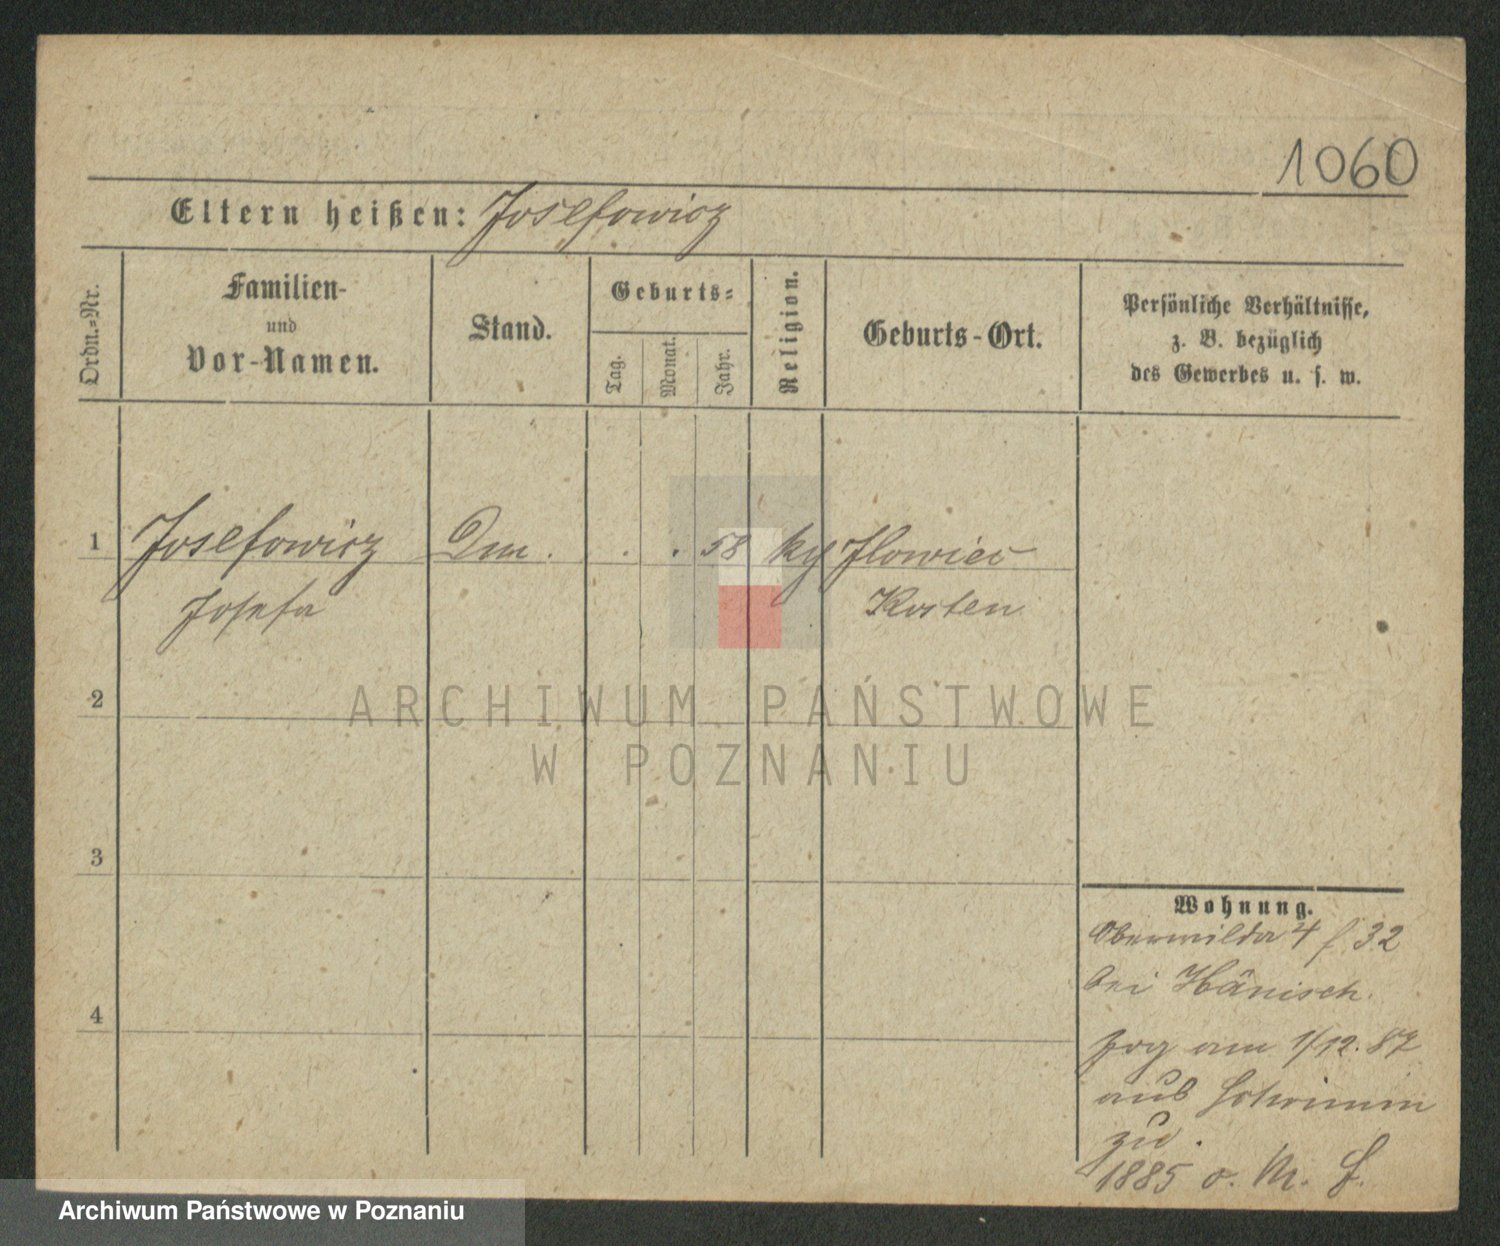 1060
Eltern heißen: Josefowicz
Ordn.=Nr.
Familien-
und
Vor-Namen.
Stand.
Geburts=
Tag.
Monat.
Jahr.
Religion.
Geburts-Ort.
Persönliche Verhältnisse,
z. B. bezüglich
des Gewerbes u. s. w.
1 Josefowicz . . 58 Ilowiec
Josefa Kosten
2
ARCHIWUM PAŃSTWOWE
W POZNANIU
3
Wohnung.
Oberwilda 4 f 32
bei Hänisch.
4
zog am 1/12. 87
aus
zu.
1885 o. M. f.
Archiwum Państwowe w Poznaniu